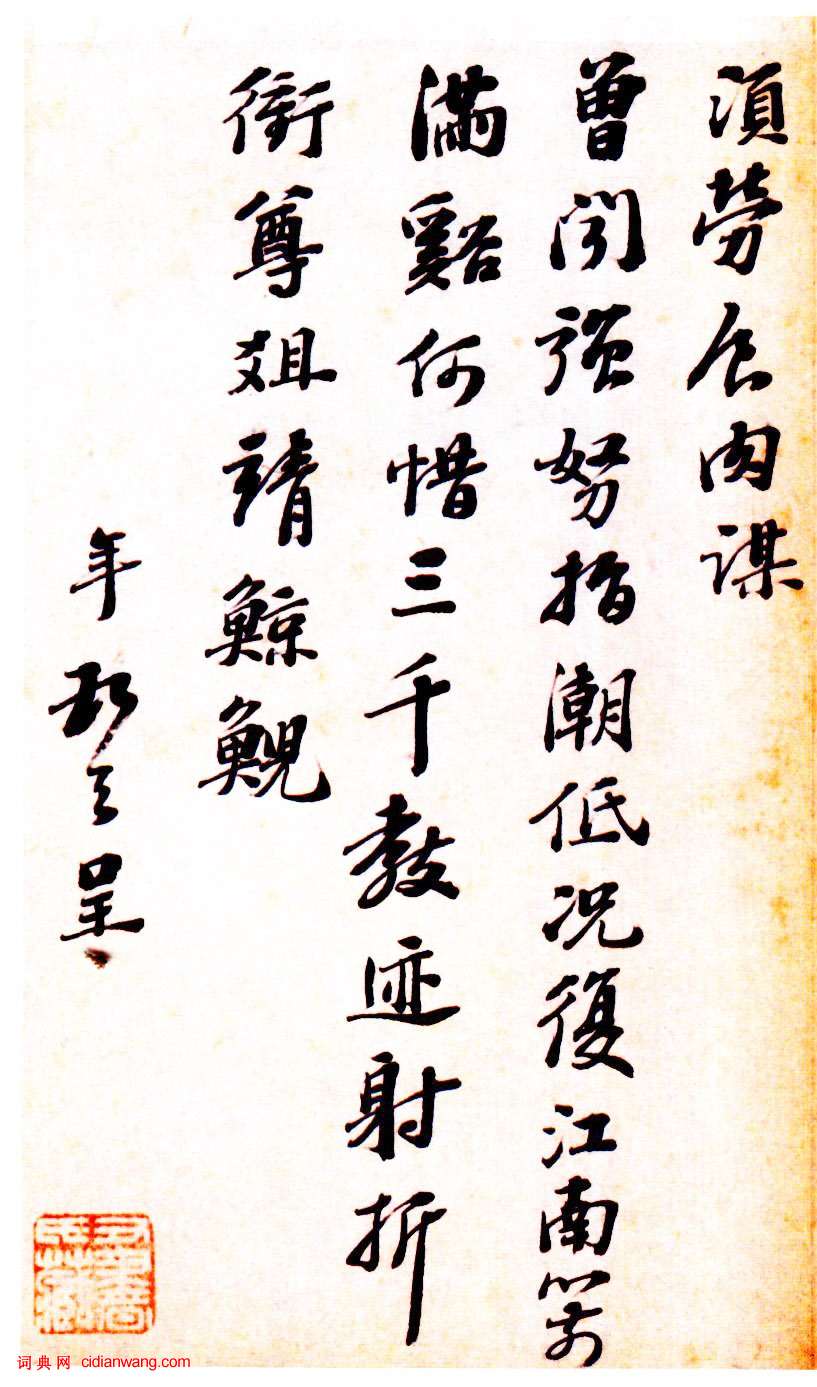 須勞食肉謀
曾聞强努指潮低況復江南箭
滿谿何惜三千教迹射折
衝尊俎靖鯨鯢
年 呈
词典网 cidianwang.com